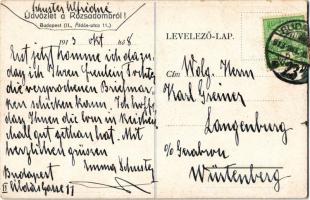 Schuster Alfrédné
Üdvözlet a Rózsadombról!
Budapest (II., Áldás-utca 11.)
1913 okt 8.
Erst jetzt komme ich dazu,
daß ich Ihren Fräulein Tochter
die versprochenen Briefmar-
ken schicken kann. Ich hoffe
daß Ihnen die
hat. Mit
herzlichen grüssen
Emma Schuster
Budapest
II
LEVELEZŐ-LAP.
Cím
Wolg. Herrn
Karl Greiner
Langenburg
o/o Gerabronn
Würtenberg